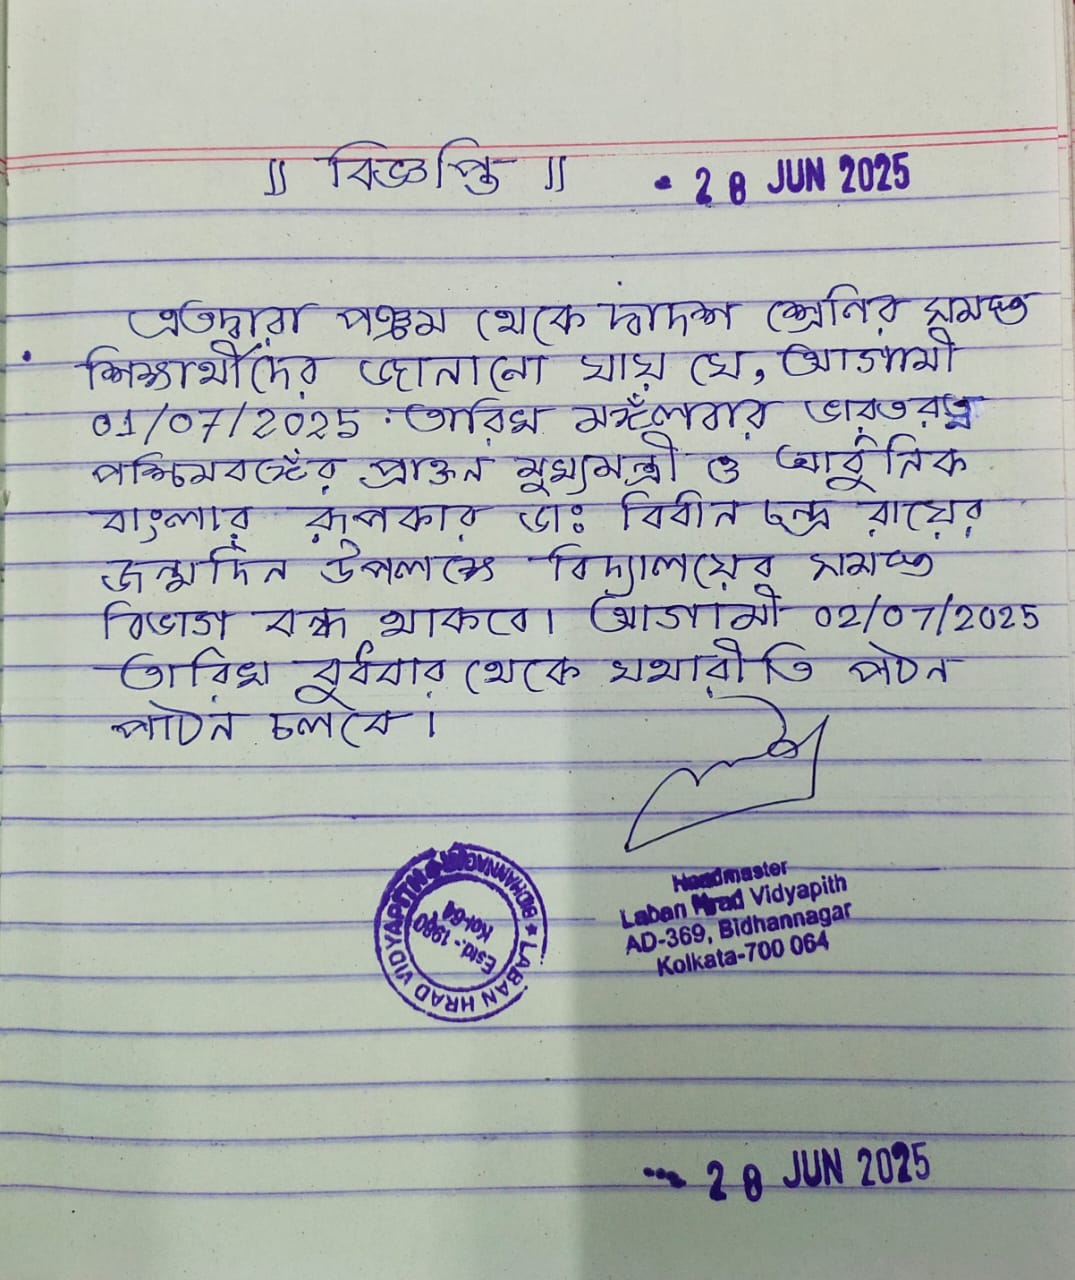 ॥ বিজ্ঞপ্তি ॥
28 JUN 2025
এতদ্বারা পঞ্চম থেকে দ্বাদশ শ্রেনির সমস্ত
শিক্ষার্থীদের জানানো যায় যে, আগামী
01/07/2025 তারিখ মঙ্গলবার ভারতরত্ন
পশ্চিমবঙ্গের প্রাক্তন মুখ্যমন্ত্রী ও আধুনিক
বাংলার রূপকার ডাঃ বিধান চন্দ্র রায়ের
জন্মদিন উপলক্ষে বিদ্যালয়ের সমস্ত
বিভাগ বন্ধ থাকবে। আগামী 02/07/2025
তারিখ বুধবার থেকে যথারীতি পঠন
পাঠন চলবে।
Headmaster
Laban Hrad Vidyapith
AD-369, Bidhannagar
Kolkata-700 064
LABAN HRAD VIDYAPITH * BIDHANNAGAR *
Estd.-1980
Kol-64
28 JUN 2025